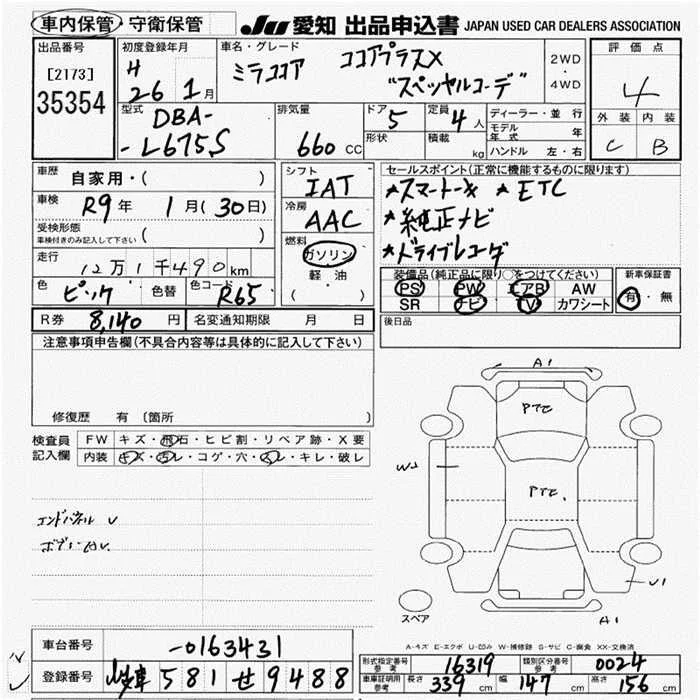 車内保管・守衛保管 JU 愛知 出品申込書 JAPAN USED CAR DEALERS ASSOCIATION
出品番号
[2173]
35354
初度登録年月
H
26 1月
車名・グレード
ミラココア ココアプラスX
"スペシャルコーデ"
2WD
・
4WD
評価点
4
外装 内装
C B
型式
DBA-
-L675S
排気量
660 CC
ドア 5
形状
定員 4人
積載 kg
ディーラー・並行
モデル年式 年
ハンドル 左・右
車歴 自家用・( )
車検 R9年 1月(30日)
受検形態
車検付きのみ記入して下さい ( )
走行
12万1千490km
色 ピンク 色替 色コード R65
シフト
IAT
冷房
AAC
燃料
ガソリン
軽油
( )
セールスポイント(正常に機能するものに限ります)
*スマートキー *ETC
*純正ナビ
*ドライブレコーダ
装備品(純正品に限り○をつけてください)
PS PW エアB AW
SR ナビ TV カワシート
新車保証書
有・無
R券 8,140円 名変通知期限 月 日
後日品
注意事項申告欄(不具合内容等は具体的に記入して下さい)
修復歴 有 〔箇所 〕
検査員
記入欄
FW キズ・飛石・ヒビ割・リペア跡・X要
内装 キズ・汚レ・コゲ・穴・スレ・キレ・破レ
エンドパネル U
A1
PTE
W2
PTE.
U1
A1
スペア
A-キズ E-エクボ U-凹み W-補修跡 S-サビ C-腐食 XX-交換済
車台番号 -0163431
登録番号 581 せ 9488
形式指定番号 参考 16319 類別区分番号 参考 0024
車庫証明用 参考 長さ 339cm 幅 147cm 高さ 156cm